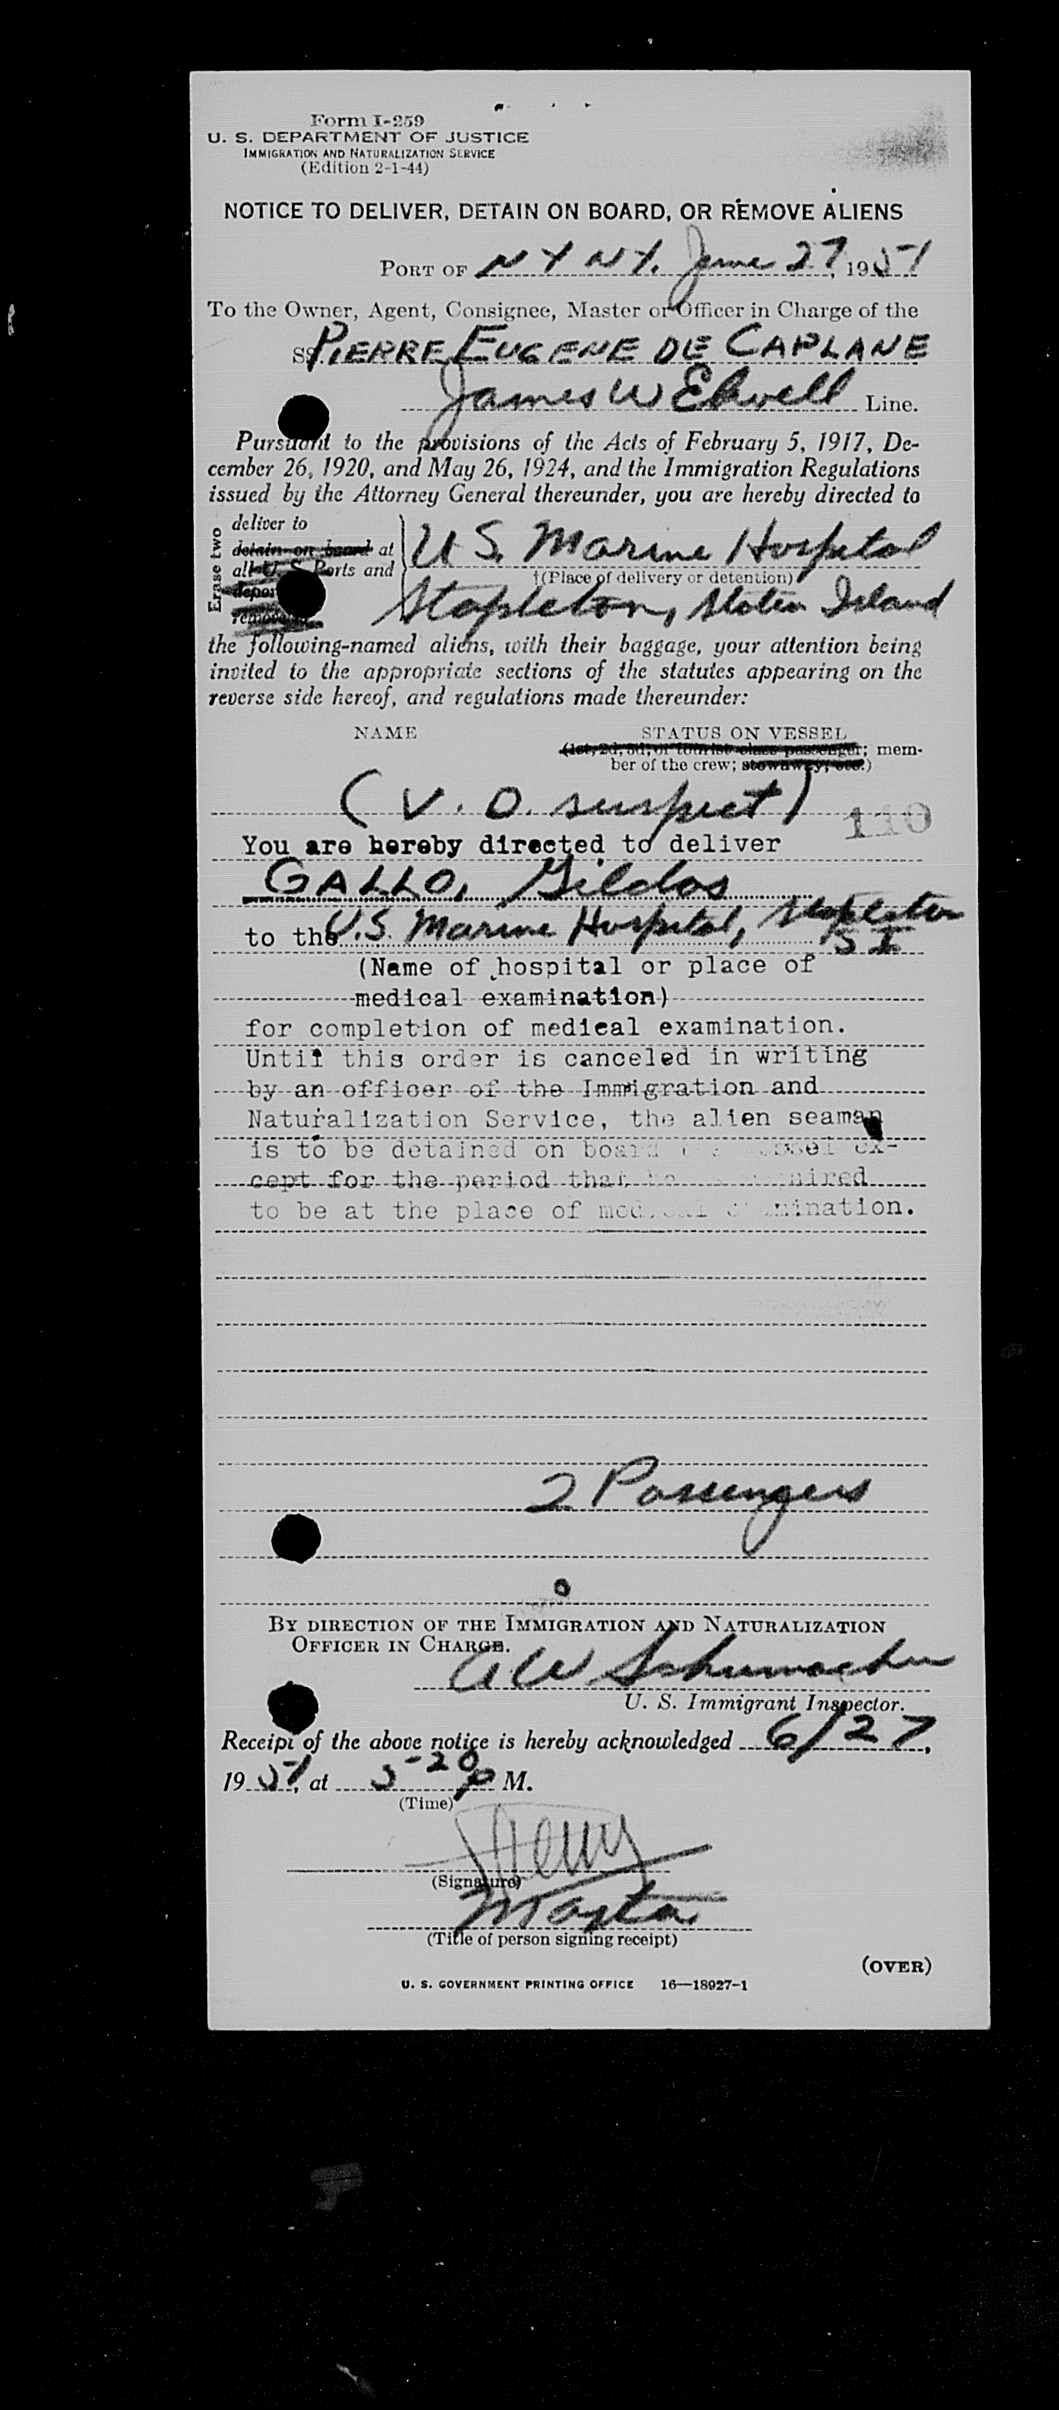 Form I-259
U. S. DEPARTMENT OF JUSTICE
IMMIGRATION AND NATURALIZATION SERVICE
(Edition 2-1-44)
NOTICE TO DELIVER, DETAIN ON BOARD, OR REMOVE ALIENS
PORT OF N Y N Y. June 27, 1951
To the Owner, Agent, Consignee, Master or Officer in Charge of the
SS PIERRE EUGENE DE CAPLANE
James W Elwell Line.
Pursuant to the provisions of the Acts of February 5, 1917, De-
cember 26, 1920, and May 26, 1924, and the Immigration Regulations
issued by the Attorney General thereunder, you are hereby directed to
Erase two
deliver to
detain on board at
all U. S. Ports and
U S. Marine Hospital
†(Place of delivery or detention)
Stapleton, Staten Island
the following-named aliens, with their baggage, your attention being
invited to the appropriate sections of the statutes appearing on the
reverse side hereof, and regulations made thereunder:
NAME STATUS ON VESSEL
(1st, 2d, 3d, or tourist class passenger; mem-
ber of the crew; stowaway, etc.)
(V. D. suspect)
110
You are hereby directed to deliver
GALLO, Gildas
to the U.S. Marine Hospital, Stapleton
S I
(Name of hospital or place of
medical examination)
for completion of medical examination.
Until this order is canceled in writing
by an officer of the Immigration and
Naturalization Service, the alien seaman
is to be detained on board vessel ex-
cept for the period that
to be at the place of medical examination.
2 Passengers
BY DIRECTION OF THE IMMIGRATION AND NATURALIZATION
OFFICER IN CHARGE.
A W Schumacher
U. S. Immigrant Inspector.
Receipt of the above notice is hereby acknowledged 6/27,
1951, at 5-20 P M.
(Time)
(Signature)
Master
(Title of person signing receipt)
(OVER)
U. S. GOVERNMENT PRINTING OFFICE 16—18927-1